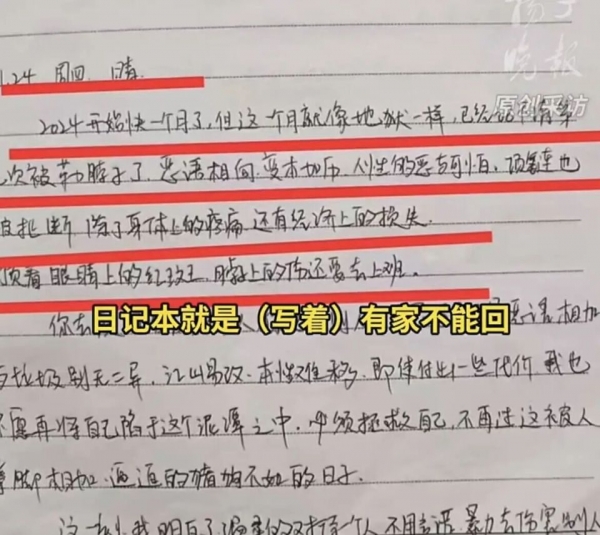 扬子
晚报
原创采访
.24 周四. 晴.
2024开始快一个月了，但这个月就像地狱一样，已经记不清第
次被勒脖子了，恶语相向，变本加厉，人性的恶与可怕，项链也
被扯断，除了身体上的疼痛，还有经济上的损失.
顶着眼睛上的红 脖子上的伤还要去上班.
日记本就是（写着）有家不能回
你 恶语相加
与垃圾别无二异，江山易改，本性难移，即使付出一些代价我也
不愿再将自己陷于这个泥潭之中，必须拯救自己，不再过这被人
拳脚相加，逼迫的猪狗不如的日子.
这 我明白了温柔的对待一个人，不用言语暴力去伤害别人